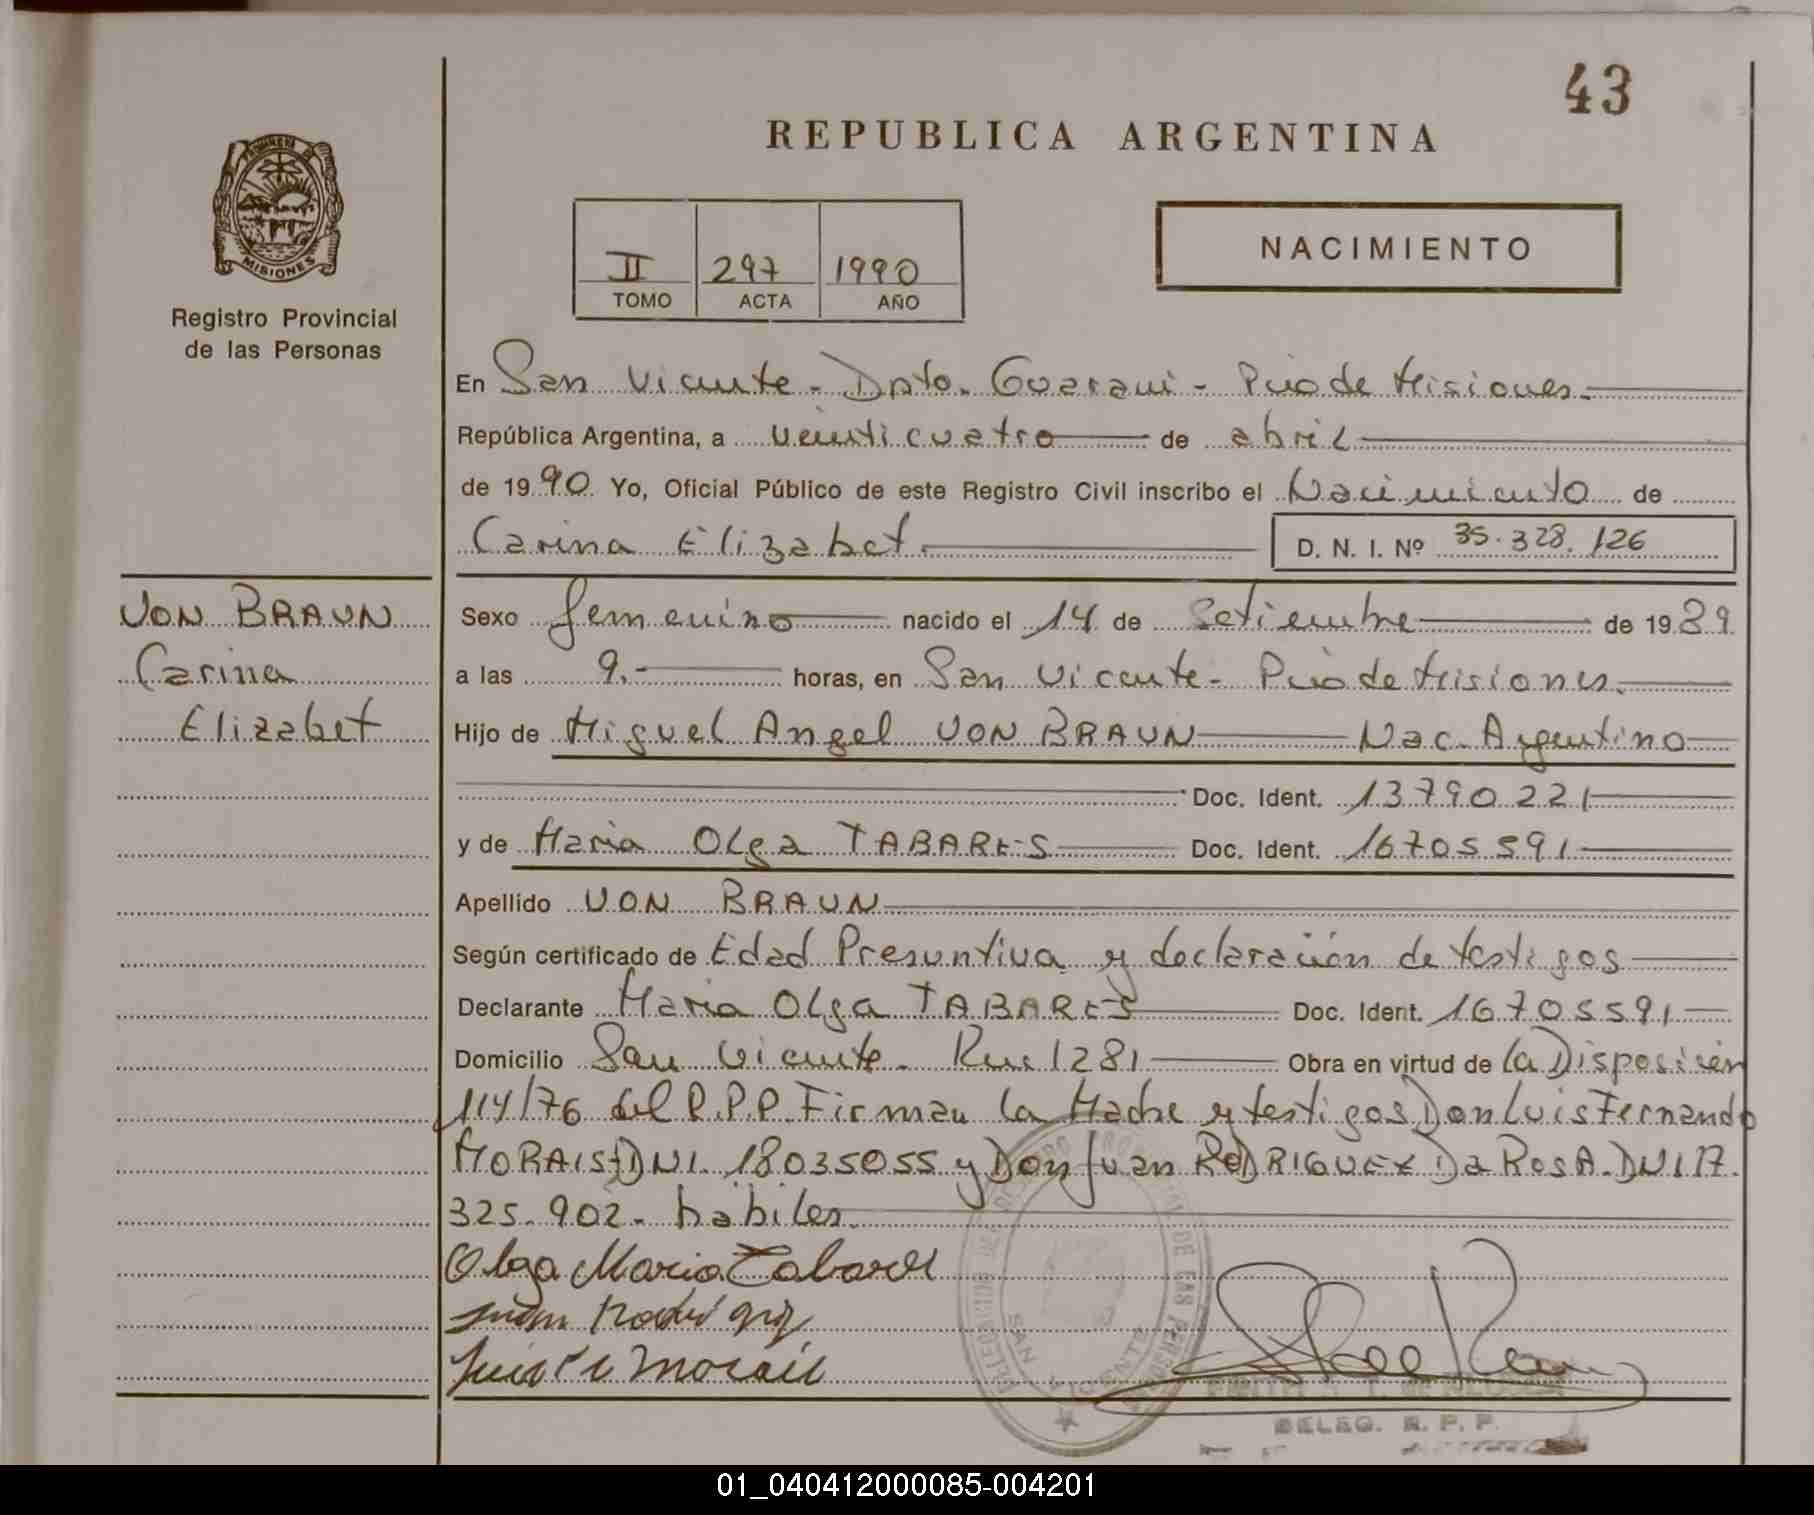 43
REPUBLICA ARGENTINA
PROVINCIA DE
MISIONES
Registro Provincial
de las Personas
II 297 1990
TOMO ACTA AÑO
NACIMIENTO
En San Vicente - Dpto. Guarani - Pcia de Misiones.
República Argentina, a veinticuatro de abril
de 1990 Yo, Oficial Público de este Registro Civil inscribo el Nacimiento de
Carina Elizabet. D. N. I. Nº 35.328.126
VON BRAUN
Carina
Elizabet
Sexo femenino nacido el 14 de Setiembre de 1989
a las 9.- horas, en San Vicente - Pcia de Misiones.
Hijo de Miguel Angel VON BRAUN Nac. Argentino
Doc. Ident. 13790221
y de Maria Olga TABARES Doc. Ident. 16705591
Apellido VON BRAUN
Según certificado de Edad Presuntiva y declaración de testigos
Declarante Maria Olga TABARES Doc. Ident. 16705591
Domicilio San Vicente - 1281 Obra en virtud de la Disposición
114/76 del R.P.P. Firman la Madre y testigos Don Luis Fernando
MORAIS-DNI. 18035055 y Don Juan RODRIGUEZ Da ROSA. DNI 17.
325.902. habiles.
Olga Maria Tabares
Juan Rodri
Luis Morais
SAN VICENTE
DELEG. R. P. P.
01_040412000085-004201